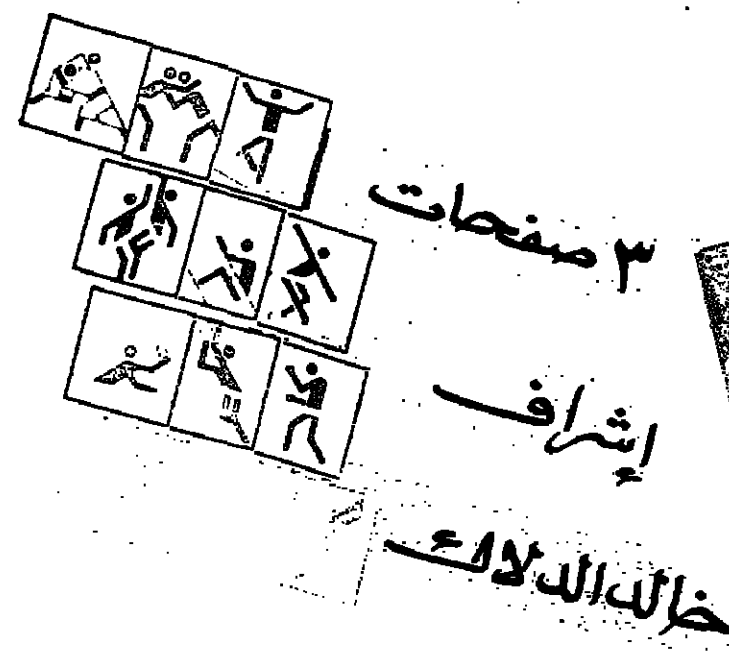 ٣ صفحات
إشراف
خالد الدلاك